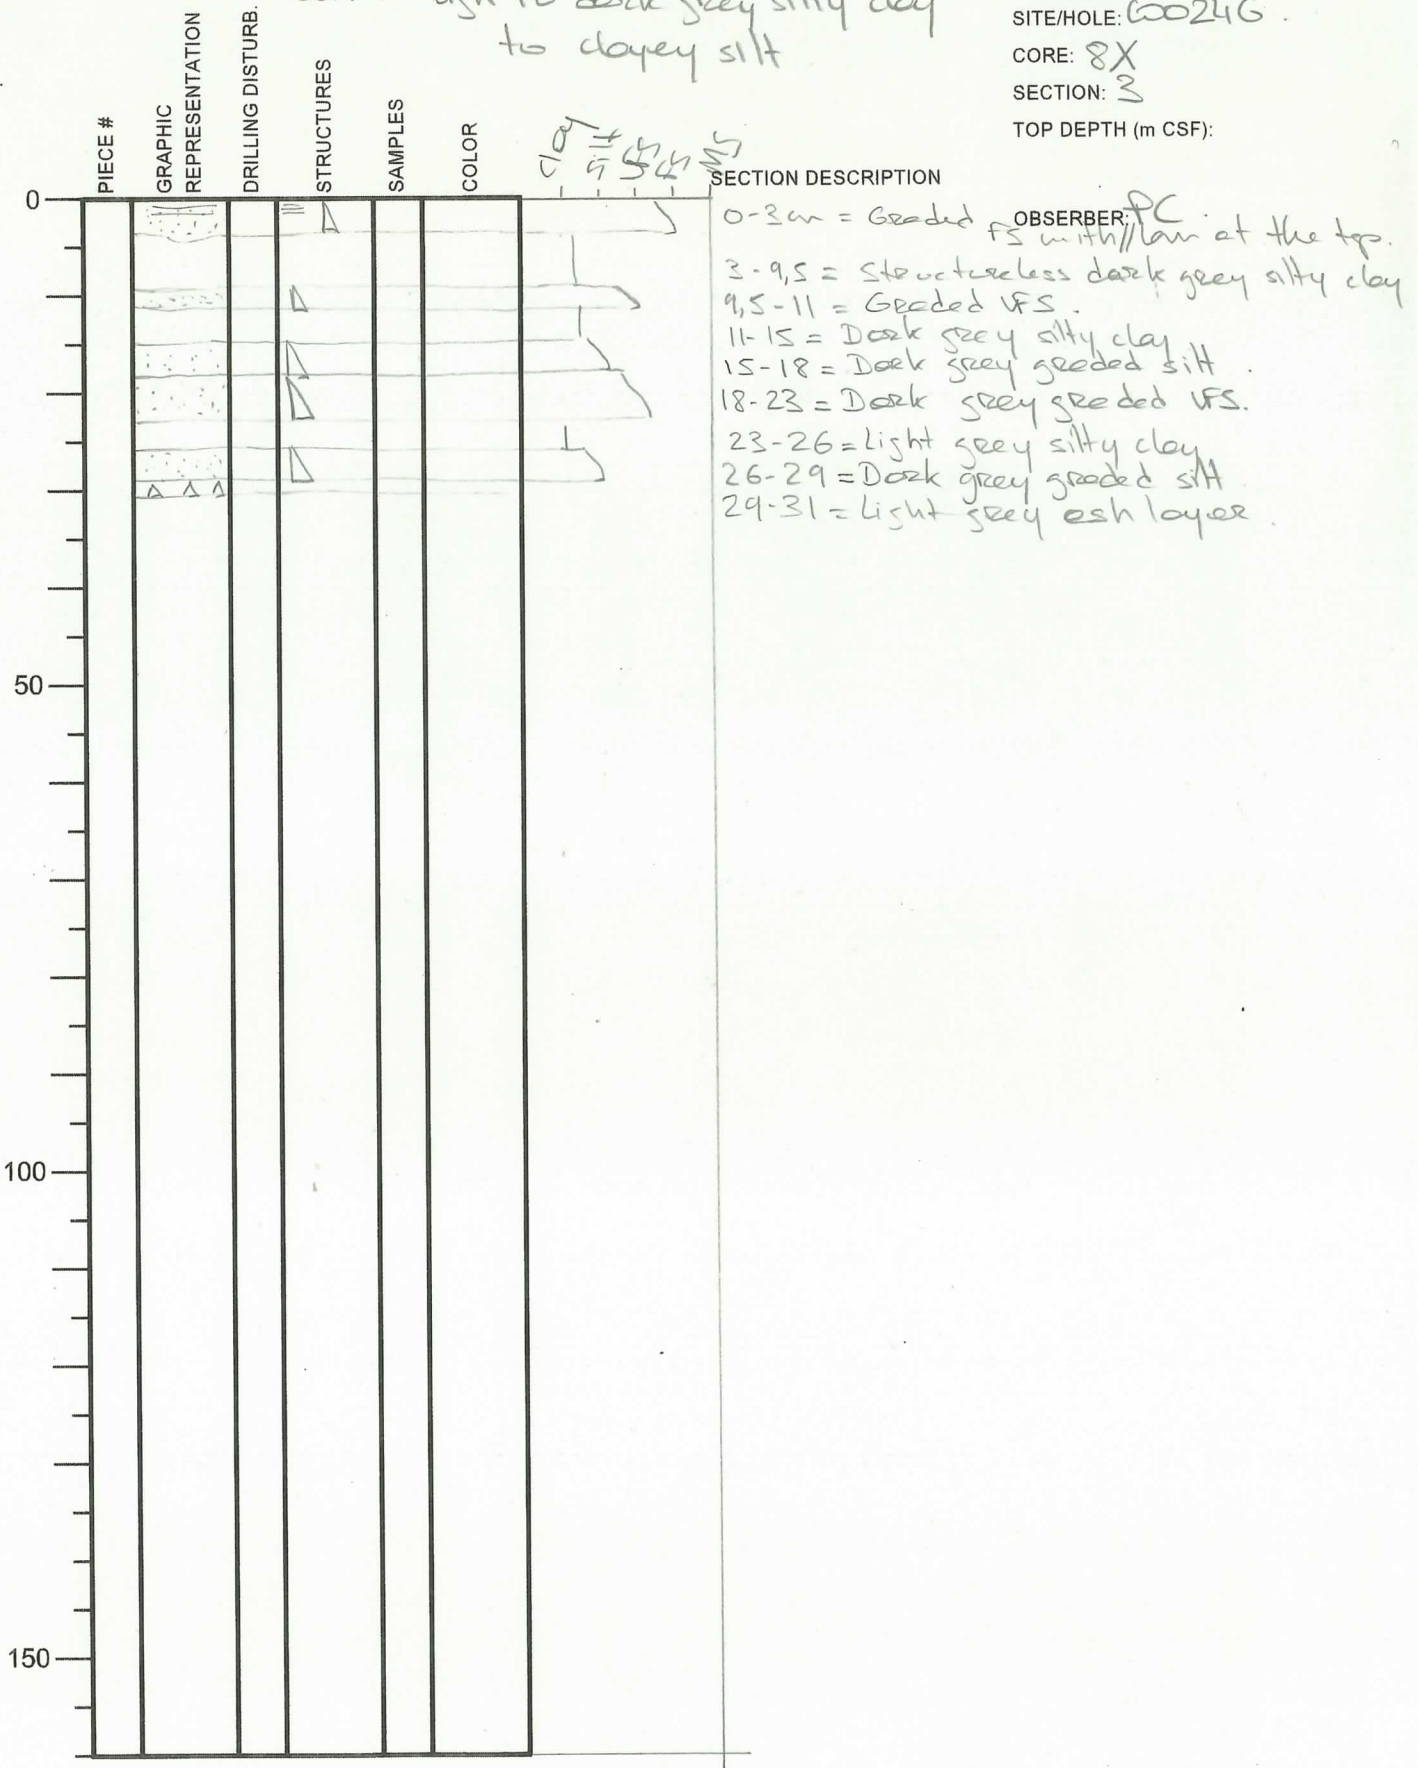 light to dark grey silty clay
to clayey silt
SITE/HOLE: C0024G.
CORE: 8X
SECTION: 3
TOP DEPTH (m CSF):
PIECE #
GRAPHIC REPRESENTATION
DRILLING DISTURB.
STRUCTURES
SAMPLES
COLOR
clay
silt
SECTION DESCRIPTION
OBSERBER: PC
0
0-3cm = Graded FS with // lam at the top.
3-9,5 = Structureless dark grey silty clay
9,5-11 = Graded VFS.
11-15 = Dark grey silty clay
15-18 = Dark grey graded silt.
18-23 = Dark grey graded VFS.
23-26 = Light grey silty clay
26-29 = Dark grey graded silt
29-31 = Light grey ash layer.
50
100
150